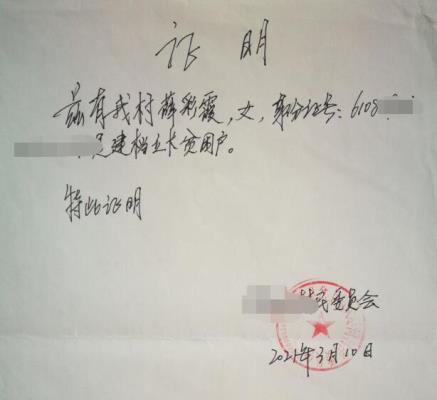 证 明
兹有我村薛彩霞,女,身份证号:6108
是建档立卡贫困户。
特此证明
民委员会
2021年3月10日